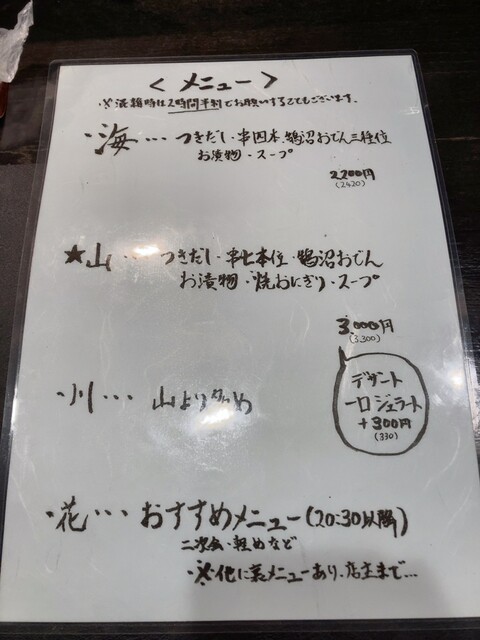 <メニュー>
※混雑時は2時間半制でお願いすることもございます。
・海・・・つきだし・串四本・鵠沼おでん三種位
お漬物・スープ
2,200円
(2420)
★山・・つきだし・串七本位・鵠沼おでん
お漬物・焼おにぎり・スープ
3,000円
(3,300)
デザート
一口ジェラート
+300円
(330)
・川・・・山より多め
・花・・・おすすめメニュー(20:30以降)
二次会・軽めなど
・※他に裏メニューあり、店主まで…